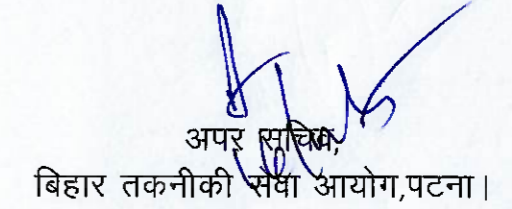 अपर सचिव,
बिहार तकनीकी सेवा आयोग,पटना।